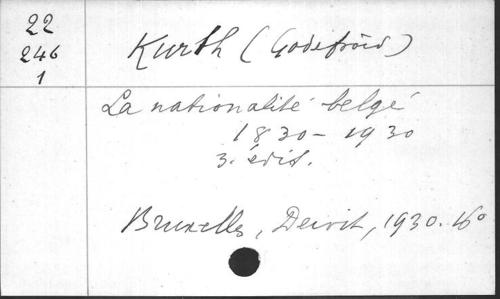 22
246
1
Kurth (Godefroid)
La nationalité belge
1830-1930
3. édit.
Bruxelles, Dewit, 1930. 16°